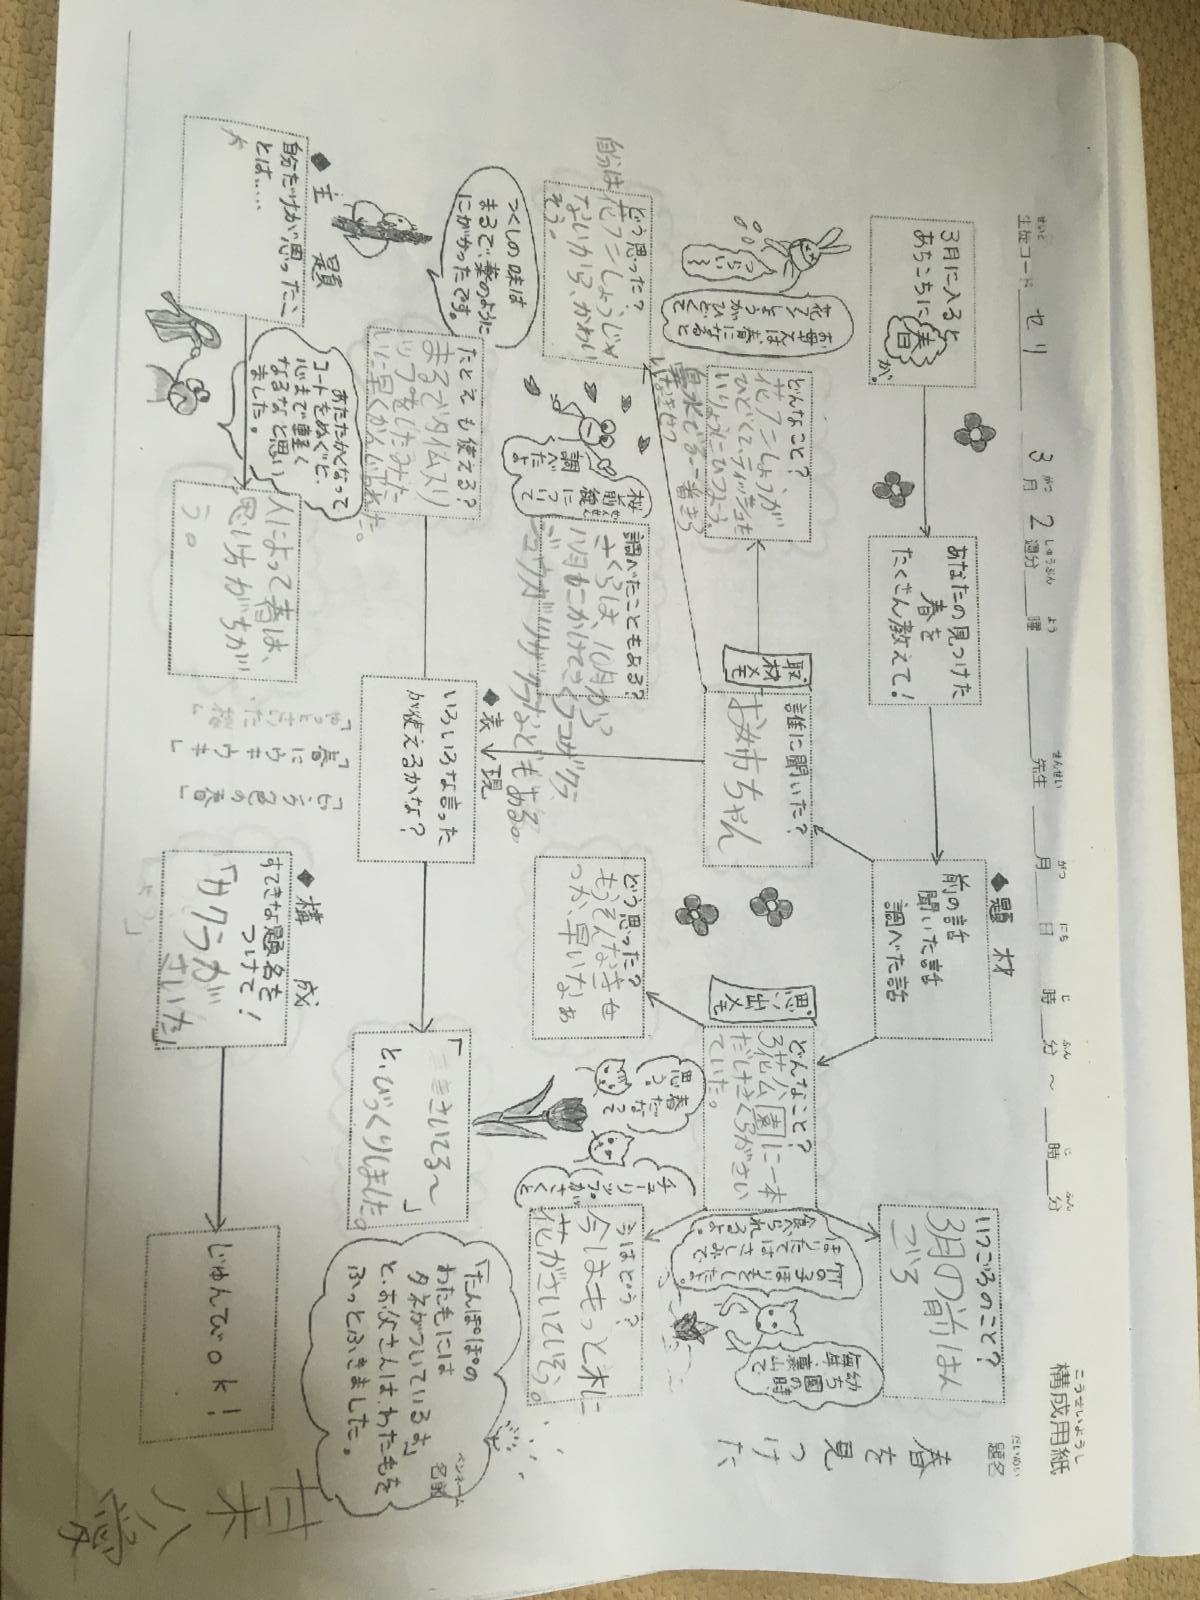 こうせいようし
構成用紙
だいめい
題名
春を見つけた
せいと
生徒コード セリ
3月2週分
がつ
しゅうぶん
よう
曜
せんせい
先生
がつ
月
にち
日
じ
時
ふん
分
～
じ
時
ふん
分
3月に入ると
あちこちに春が。
あなたの見つけた
春を
たくさん教えて！
◆題材
前の話
聞いた話
調べた話
いつごろのこと？
3月の前はん
ごろ
取材メモ
誰に聞いた？
お姉ちゃん
どんなこと？
花フンしょうが
ひどくて、ティッシュを
いりょうにひつよう。
鼻水で
お母さんは、春になると
花フンしょうがひどくて
つらい〜
どう思った？
自分は花フンしょうじゃ
ないから、かわい
そう。
思い出メモ
どんなこと？
花公園に一本
だけさくらがさい
ていた。
どう思った？
もうそんなきせ
つか、早いなぁ
今はどう？
今はもっと木に
花がさいている。
幼ち園の時
毎年裏山で
竹の子ほりをした。
ほりたてはさしみで
食べられるよ。
チューリップがさくと
春だなって
思う。
調べたこともある？
さくらは、10月から
桜前線について
調べたよ
つくしの味は
まるで、薬のように
にがかったです。
◆表現
いろいろな言った
が使えるかな？
たとえも使える？
まるでタイムスリ
ップをしたみた
いに早くかんじられた。
さいてる〜」
と、びっくりしました。
「たんぽぽの
わた毛には
タネがついているよ」
と、お父さんは、わた毛を
ふっとふきました。
◆主題
自分だけが思ったこ
とは……
あたたかくなって
コートをぬぐと、
心まで軽く
なるなと思い
ました。
人によって春は、
思い方がちが
う。
「春にウキウキ」
◆構成
すてきな題名を
つけて！
「サクラが
さいた」
じゅんびok！
ペンネーム
名前
甘木八愛